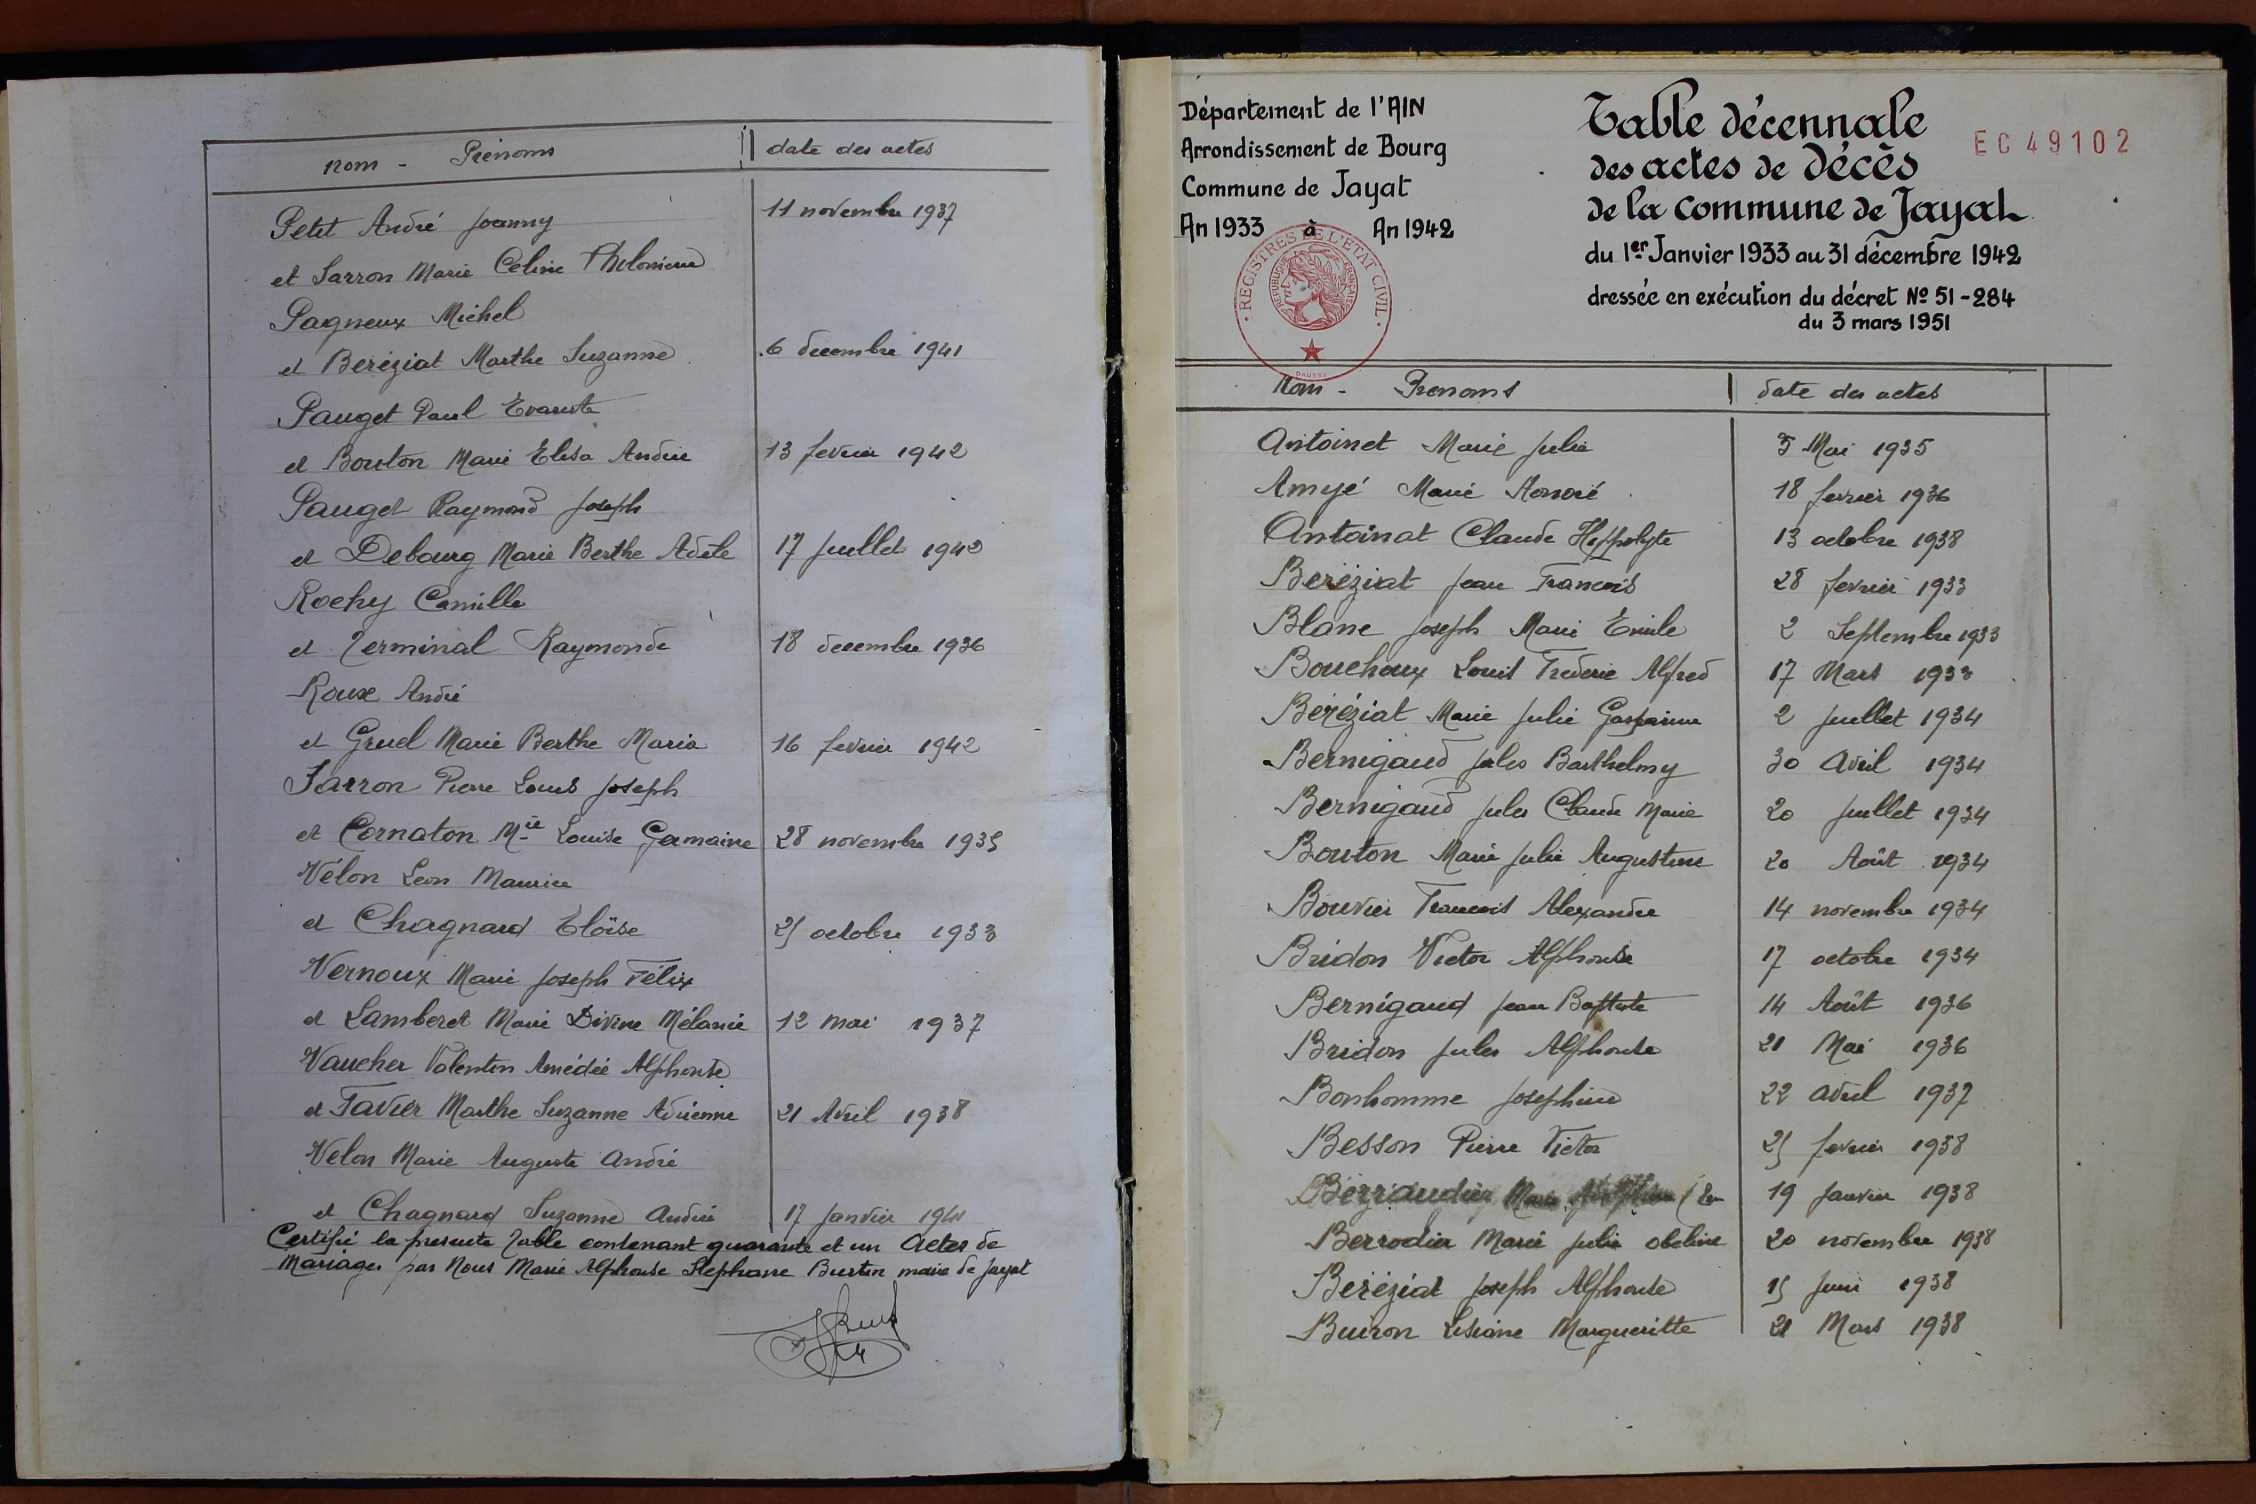 nom - Prénoms date des actes
Petit André Joanny 11 novembre 1937
et Sarron Marie Celine Philomène
Pagneux Michel
et Beréziat Marthe Suzanne 6 decembre 1941
Pauget Paul Evariste
et Bouton Marie Elisa Andrée 13 fevrier 1942
Pauget Raymond Joseph
et Debourg Marie Berthe Adèle 17 Juillet 1942
Rochy Camille
et Terminal Raymonde 18 decembre 1936
Roux André
et Gruel Marie Berthe Maria 16 fevrier 1942
Sarron Pierre Louis Joseph
et Cornaton Mie Louise Germaine 28 novembre 1935
Vélon Léon Maurice
et Chagnard Eloïse 25 octobre 1933
Vernoux Marie Joseph Félix
et Lamberet Marie Divine Mélanie 12 mai 1937
Vaucher Valentin Amédée Alphonse
et Favier Marthe Suzanne Adrienne 21 Avril 1938
Velon Marie Auguste André
et Chagnard Suzanne Andrée 17 Janvier 1941
Certifié la presente Table contenant quarante et un Actes de
Mariages par Nous Marie Alphonse Stephane Burtin maire de Jayat
Département de l'AIN
Arrondissement de Bourg
Commune de Jayat
An 1933 à An 1942
REGISTRES DE L'ETAT CIVIL
REPUBLIQUE FRANÇAISE
Table décennale
des actes de décès
de la commune de Jayat
EC49102
du 1er Janvier 1933 au 31 décembre 1942
dressée en exécution du décret No 51-284
du 3 mars 1951
Nom - Prenoms date des actes
Antoinet Marie Julie 5 Mai 1935
Amyé Marie Honoré 18 fevrier 1936
Antoinat Claude Hyppolyte 13 octobre 1938
Beréziat Jean Francois 28 fevrier 1933
Blanc Joseph Marie Emile 2 Septembre 1933
Bouchoux Louis Frederic Alfred 17 Mars 1933
Beréziat Marie Julie Gasparine 2 Juillet 1934
Bernigaud Jules Barthelmy 30 Avril 1934
Bernigaud Jules Claude Marie 20 Juillet 1934
Bouton Marie Julie Augustine 20 Août 1934
Bouvier Francois Alexandre 14 novembre 1934
Bridon Victor Alphonse 17 octobre 1934
Bernigaud Jean Baptiste 14 Août 1936
Bridon Jules Alphonse 21 Mai 1936
Bonhomme Josephine 22 avril 1937
Besson Pierre Victor 25 fevrier 1938
Berraudier Marie 19 Janvier 1938
Berrodier Marie Julie Obeline 20 novembre 1938
Beréziat Joseph Alphonse 15 Juin 1938
Buiron Lisiane Margueritte 21 Mars 1938